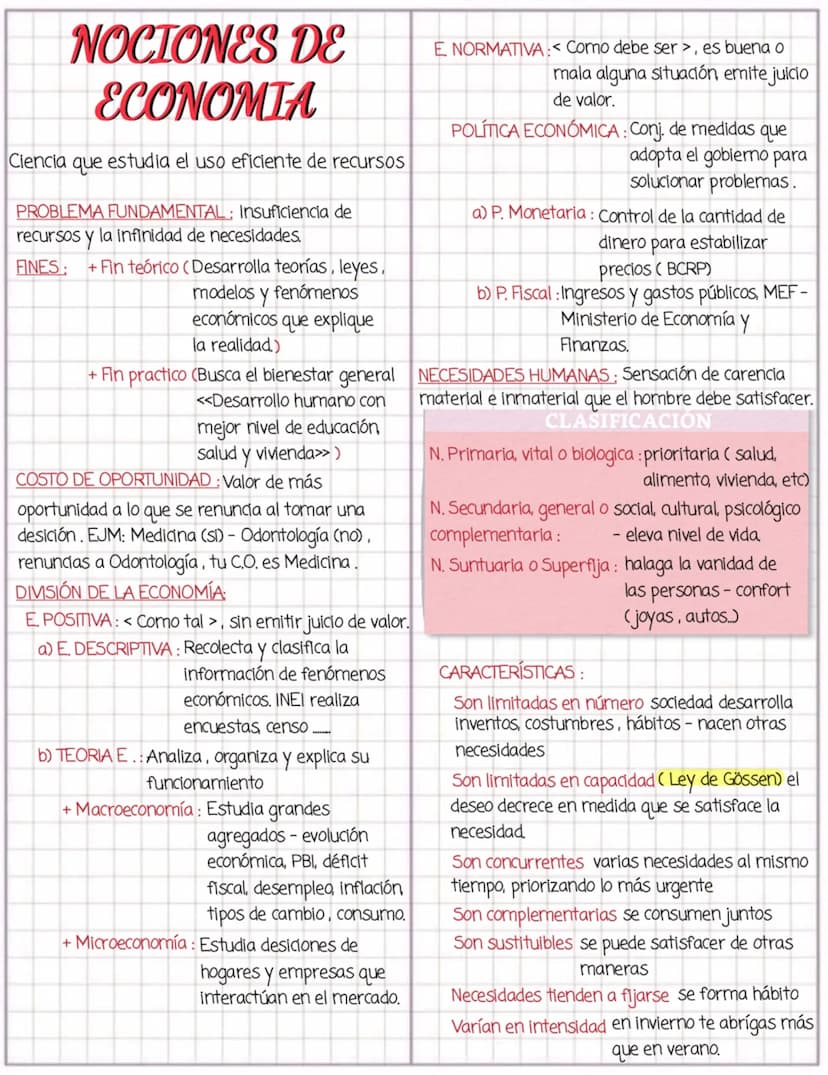 NOCIONES DE
ECONOMIA
Ciencia que estudia el uso eficiente de recursos
PROBLEMA FUNDAMENTAL : Insuficiencia de
recursos y la infinidad de necesidades.
FINES : + Fin teórico ( Desarrolla teorías , leyes ,
modelos y fenómenos
económicos que explique
la realidad.)
+ Fin practico (Busca el bienestar general
<<Desarrollo humano con
mejor nivel de educación,
salud y vivienda>> )
COSTO DE OPORTUNIDAD : Valor de más
oportunidad a lo que se renuncia al tomar una
desición . EJM: Medicina (si) - Odontología (no) ,
renuncias a Odontología , tu C.O. es Medicina .
DIVISIÓN DE LA ECONOMÍA:
E. POSITIVA : < Como tal > , sin emitir juicio de valor.
a) E. DESCRIPTIVA : Recolecta y clasifica la
información de fenómenos
económicos. INEI realiza
encuestas, censo ......
b) TEORIA E . : Analiza , organiza y explica su
funcionamiento
+ Macroeconomía : Estudia grandes
agregados - evolución
económica, PBI, déficit
fiscal, desempleo, inflación,
tipos de cambio , consumo.
+ Microeconomía : Estudia desiciones de
hogares y empresas que
interactúan en el mercado.
E. NORMATIVA : < Como debe ser > , es buena o
mala alguna situación, emite juicio
de valor.
POLÍTICA ECONÓMICA : Conj. de medidas que
adopta el gobierno para
solucionar problemas .
a) P. Monetaria : Control de la cantidad de
dinero para estabilizar
precios ( BCRP)
b) P. Fiscal : Ingresos y gastos públicos, MEF -
Ministerio de Economía y
Finanzas.
NECESIDADES HUMANAS : Sensación de carencia
material e inmaterial que el hombre debe satisfacer.
CLASIFICACIÓN
N. Primaria, vital o biologica : prioritaria ( salud,
alimento, vivienda, etc)
N. Secundaria, general o social, cultural, psicológico
complementaria : - eleva nivel de vida.
N. Suntuaria o Superflja : halaga la vanidad de
las personas - confort
( joyas , autos...)
CARACTERÍSTICAS :
Son limitadas en número sociedad desarrolla
inventos, costumbres , hábitos - nacen otras
necesidades
Son limitadas en capacidad ( Ley de Gössen) el
deseo decrece en medida que se satisface la
necesidad.
Son concurrentes varias necesidades al mismo
tiempo, priorizando lo más urgente
Son complementarias se consumen juntos
Son sustituibles se puede satisfacer de otras
maneras
Necesidades tienden a fijarse se forma hábito
Varían en intensidad en invierno te abrígas más
que en verano.